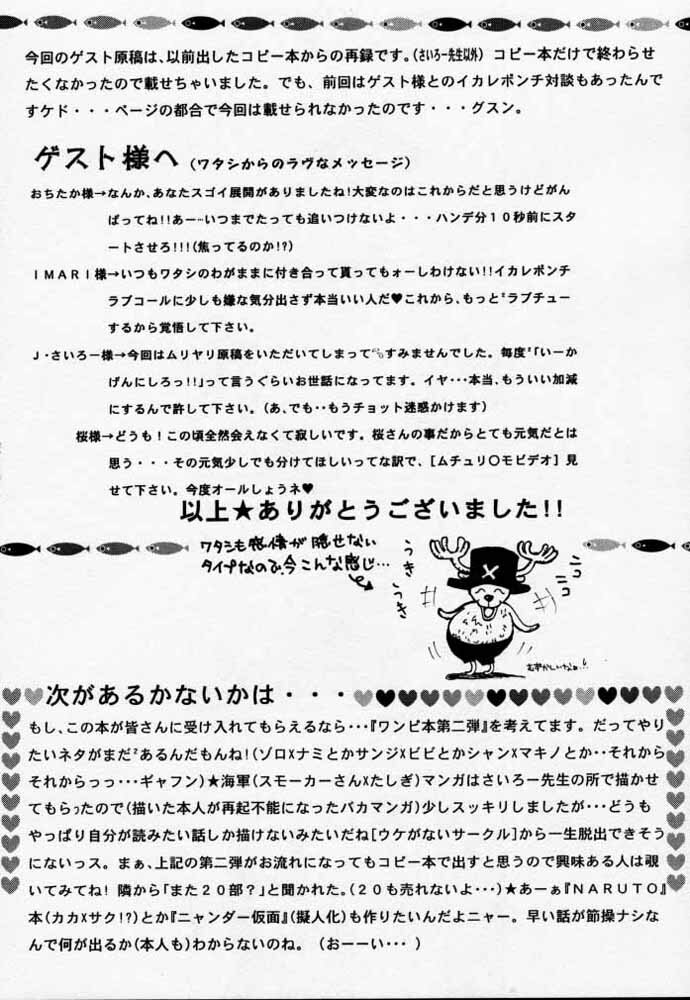 今回のゲスト原稿は、以前出したコピー本からの再録です。(さいろー先生以外) コピー本だけで終わらせ
たくなかったので載せちゃいました。でも、前回はゲスト様とのイカレポンチ対談もあったんで
すケド・・・ページの都合で今回は載せられなかったのです・・・グスン。
ゲスト様へ (ワタシからのラヴなメッセージ)
おちたか様→なんか、あなたスゴイ展開がありましたね!大変なのはこれからだと思うけどがん
ばってね!!あー…いつまでたっても追いつけないよ・・・ハンデ分10秒前にスタ
ートさせろ!!!(焦ってるのか!?)
IMARI様→いつもワタシのわがままに付き合って貰ってもォーしわけない!!イカレポンチ
ラブコールに少しも嫌な気分出さず本当いい人だ♥これから、もっと〃ラブチュー
するから覚悟して下さい。
J・さいろー様→今回はムリヤリ原稿をいただいてしまって すみませんでした。毎度〃「いーか
げんにしろっ!!」って言うぐらいお世話になってます。イヤ・・・本当、もういい加減
にするんで許して下さい。(あ、でも・・もうチョット迷惑かけます)
桜様→どうも!この頃全然会えなくて寂しいです。桜さんの事だからとても元気だとは
思う・・・その元気少しでも分けてほしいってな訳で、[ムチュリ〇モビデオ]見
せて下さい。今度オールしょうネ♥
以上★ありがとうございました!!
ワタシも感情が隠せない
タイプなので今こんな感じ…
うき
うき
ニコ
ニコ
むずかしいなぁ…!
次があるかないかは・・・
もし、この本が皆さんに受け入れてもらえるなら・・・『ワンピ本第二弾』を考えてます。だってやり
たいネタがまだ〃あるんだもんね!(ゾロxナミとかサンジxビビとかシャンxマキノとか・・それから
それからっっ・・・ギャフン)★海軍(スモーカーさんxたしぎ)マンガはさいろー先生の所で描かせ
てもらったので(描いた本人が再起不能になったバカマンガ)少しスッキリしましたが・・・どうも
やっぱり自分が読みたい話しか描けないみたいだね[ウケがないサークル]から一生脱出できそう
にないっス。まぁ、上記の第二弾がお流れになってもコピー本で出すと思うので興味ある人は覗
いてみてね! 隣から「また20部?」と聞かれた。(20も売れないよ・・・)★あーぁ『NARUTO』
本(カカxサク!?)とか『ニャンダー仮面』(擬人化)も作りたいんだよニャー。早い話が節操ナシな
んで何が出るか(本人も)わからないのね。 (おーーい・・・ )